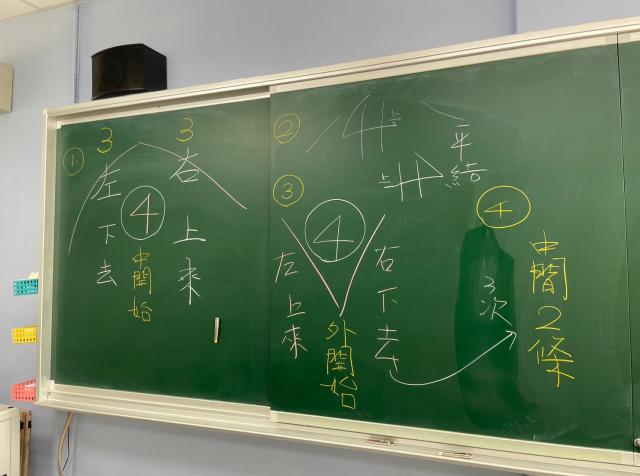 ①
3 3
左下去
④
中開始
右上來
②
上
上
平結
③
左上來
④
外開始
右下去
④
3次
中間2條